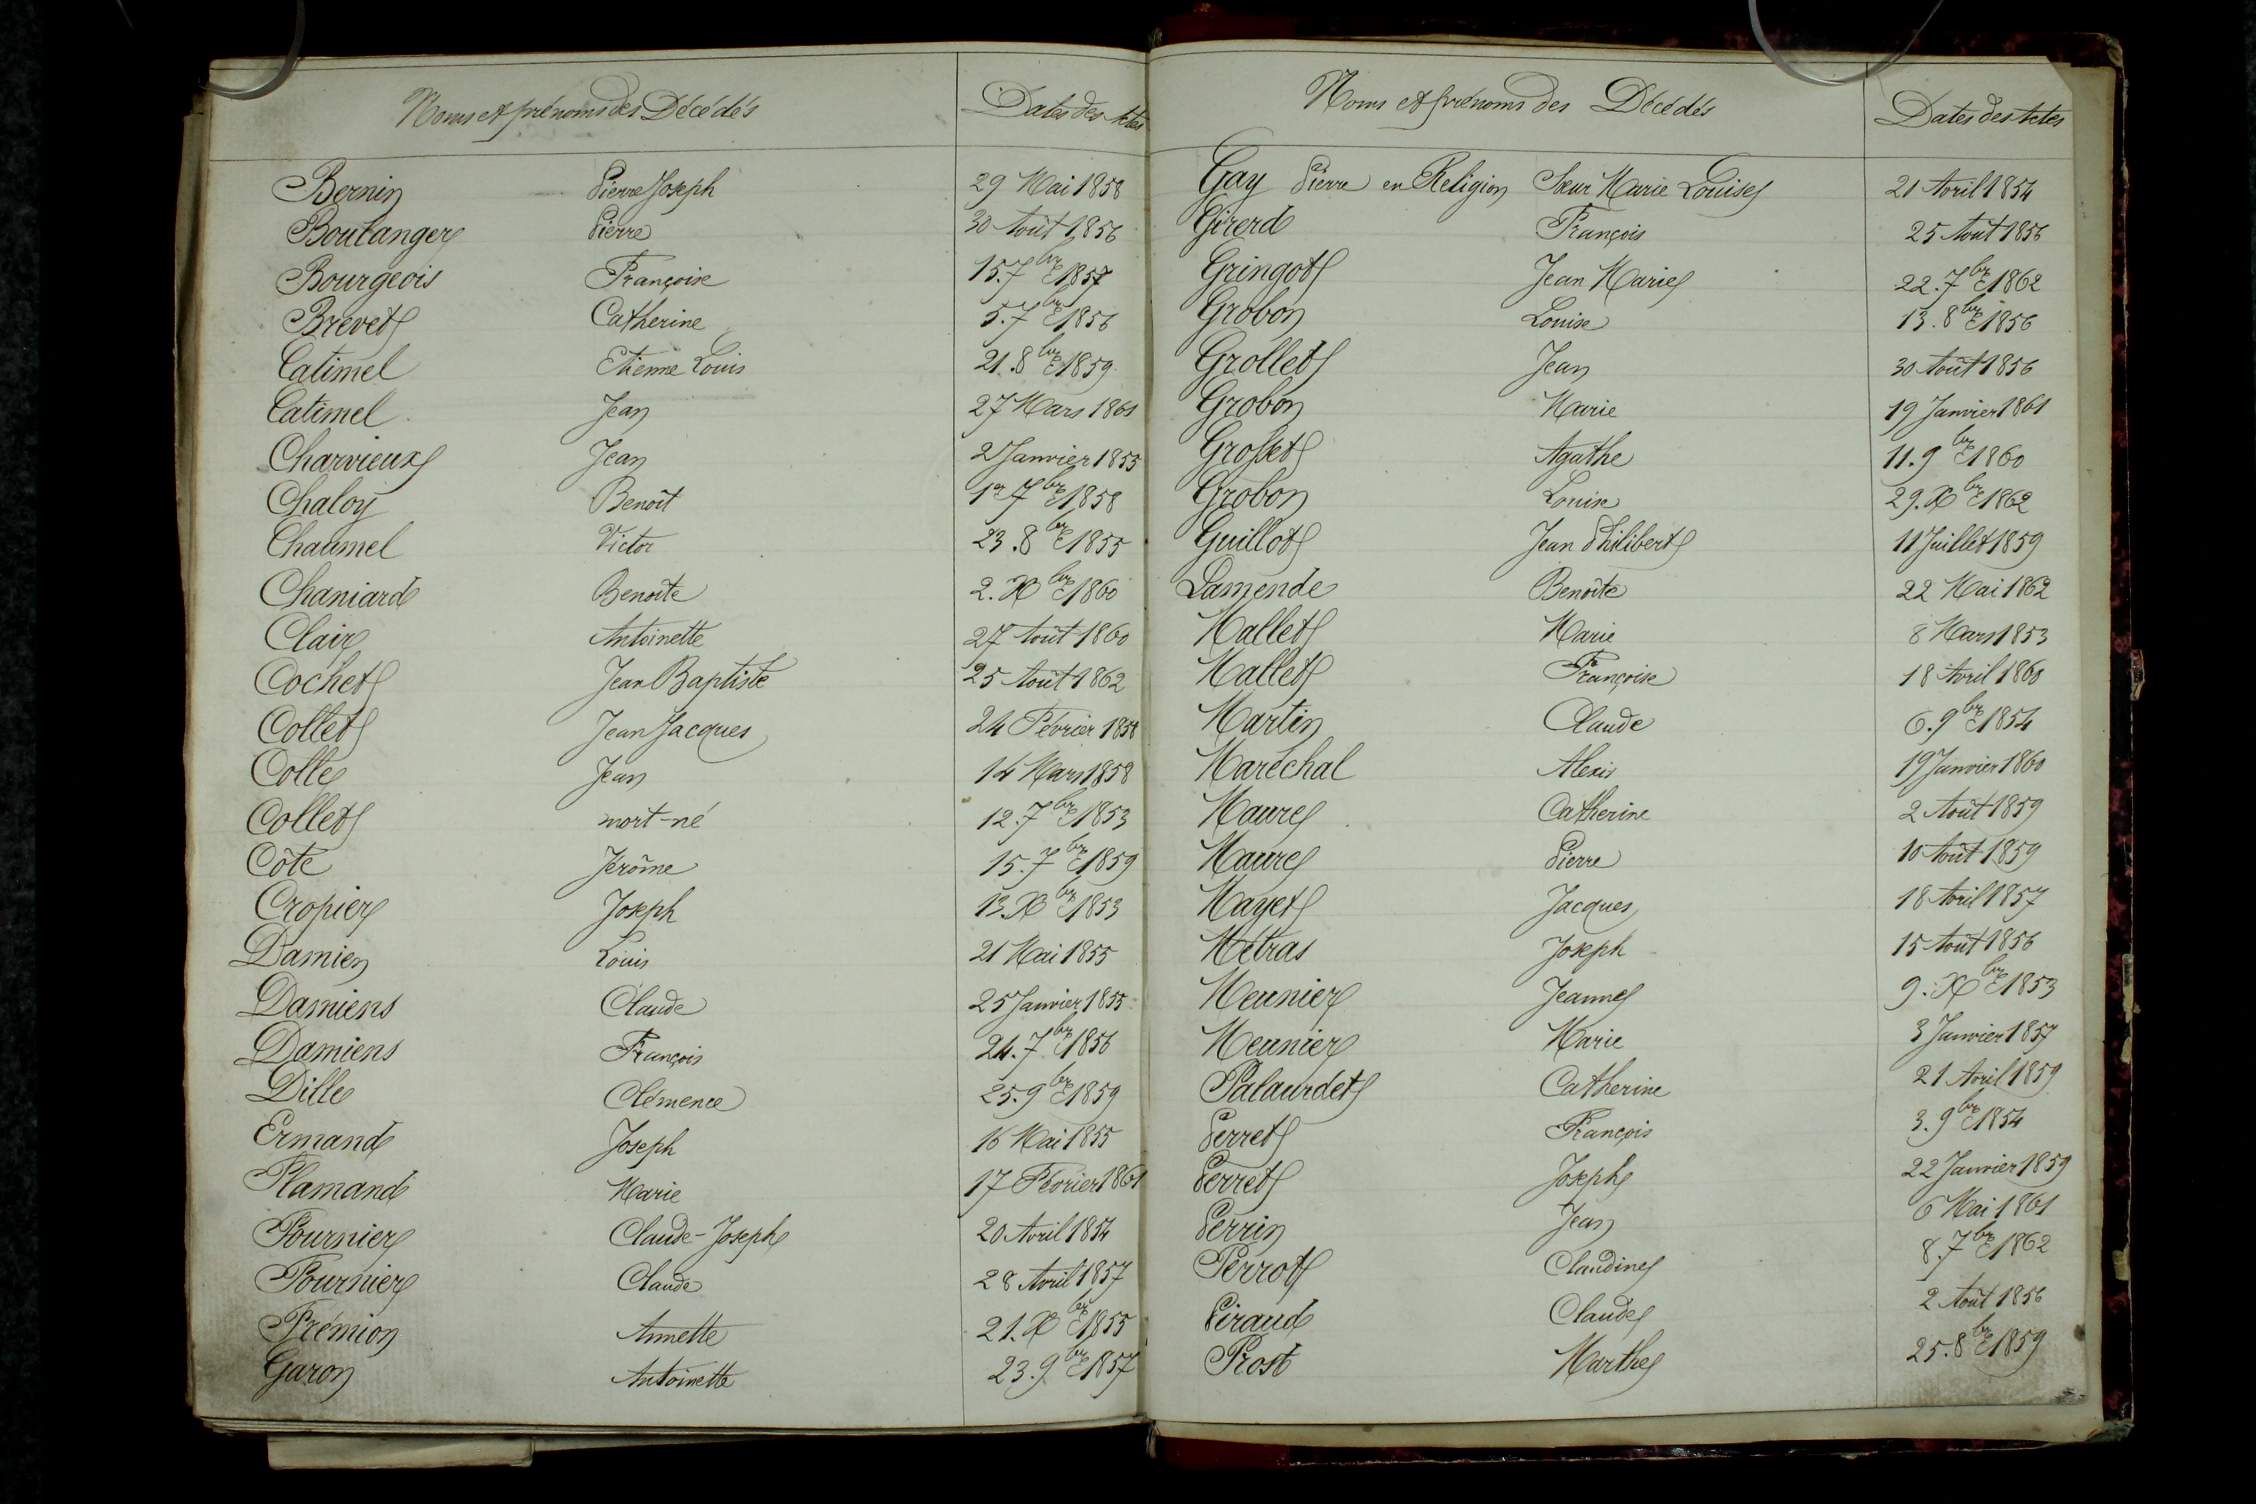 Noms et prénoms des Décédés Dates des Actes
Bernin Pierre Joseph 29 Mai 1858
Boulanger Pierre 30 Août 1856
Bourgeois Françoise 15. 7bre 1857
Brevet Catherine 5. 7bre 1856
Catimel Etienne Louis 21. 8bre 1859
Catimel Jean 27 Mars 1861
Charvieux Jean 2 Janvier 1855
Chaloy Benoît 1er 7bre 1858
Chaumel Victor 23. 8bre 1855
Chaniard Benoîte 2. Xbre 1860
Clair Antoinette 27 Août 1860
Cochet Jean Baptiste 25 Août 1862
Collet Jean Jacques 24 Février 1858
Colle Jean 14 Mars 1858
Collet mort-né 12. 7bre 1853
Côte Jérôme 15. 7bre 1859
Cropier Joseph 13. Xbre 1853
Damien Louis 21 Mai 1855
Damiens Claude 25 Janvier 1855
Damiens François 24. 7bre 1856
Dille Clémence 25. 9bre 1859
Ermand Joseph 16 Mai 1855
Flamand Marie 17 Février 1861
Fournier Claude-Joseph 20 Avril 1854
Fournier Claude 28 Avril 1857
Frémion Annette 21. Xbre 1855
Garon Antoinette 23. 9bre 1857
Noms et prénoms des Décédés Dates des Actes
Gay Pierre en Religion Sœur Marie Louise 21 Avril 1854
Girerd François 25 Août 1856
Gringot Jean Marie 22. 7bre 1862
Grobon Louise 13. 8bre 1856
Grollet Jean 30 Août 1856
Grobon Marie 19 Janvier 1861
Grosset Agathe 11. 9bre 1860
Grobon Louise 29. Xbre 1862
Guillot Jean Philibert 11 Juillet 1859
Lamende Benoîte 22 Mai 1862
Mallet Marie 8 Mars 1853
Mallet Françoise 18 Avril 1860
Martin Claude 6. 9bre 1854
Maréchal Alexis 19 Janvier 1860
Maure Catherine 2 Août 1859
Maure Pierre 10 Août 1859
Mayet Jacques 18 Avril 1857
Métras Joseph 15 Août 1856
Meunier Jeanne 9. Xbre 1853
Meunier Marie 3 Janvier 1857
Palaurdet Catherine 21 Avril 1859
Perret François 3. 9bre 1854
Perret Joseph 22 Janvier 1859
Perrin Jean 6 Mai 1861
Perrot Claudine 8. 7bre 1862
Piraud Claude 2 Août 1856
Prost Marthe 25. 8bre 1859